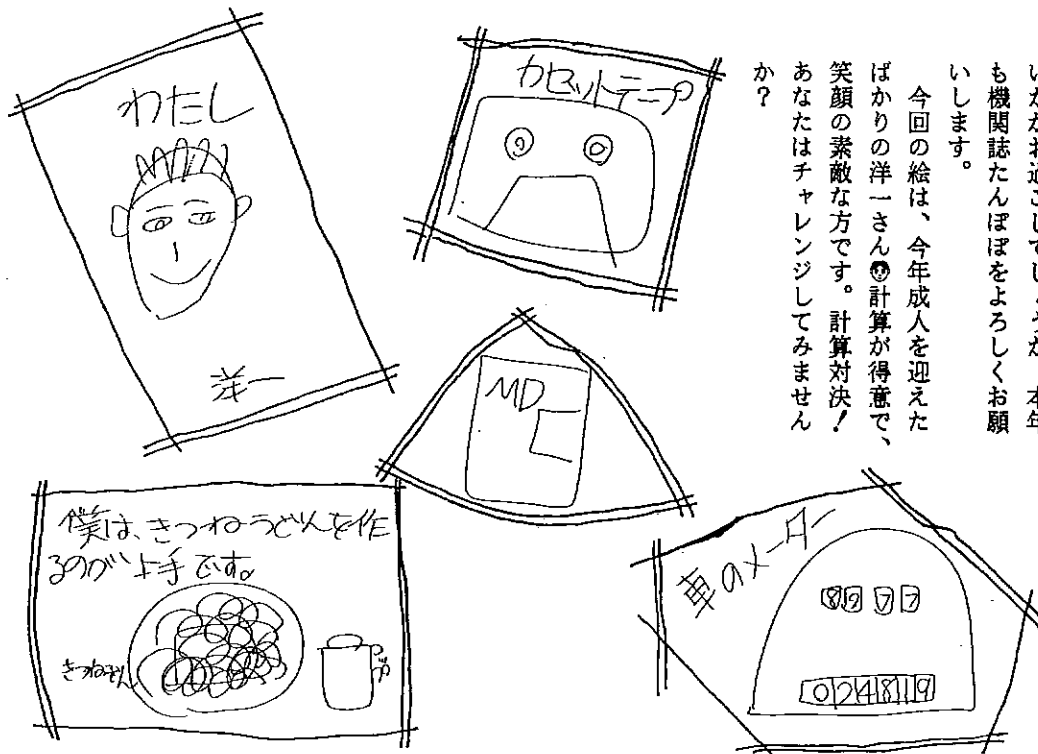 も機関誌たんぽぽをよろしくお願
いします。
今回の絵は、今年成人を迎えた
ばかりの洋一さん計算が得意で、
笑顔の素敵な方です。計算対決！
あなたはチャレンジしてみません
か？
わたし
洋一
カセットテープ
MD
僕は、きつねうどんを作
るのが上手です。
きつねうどん
車のメーター